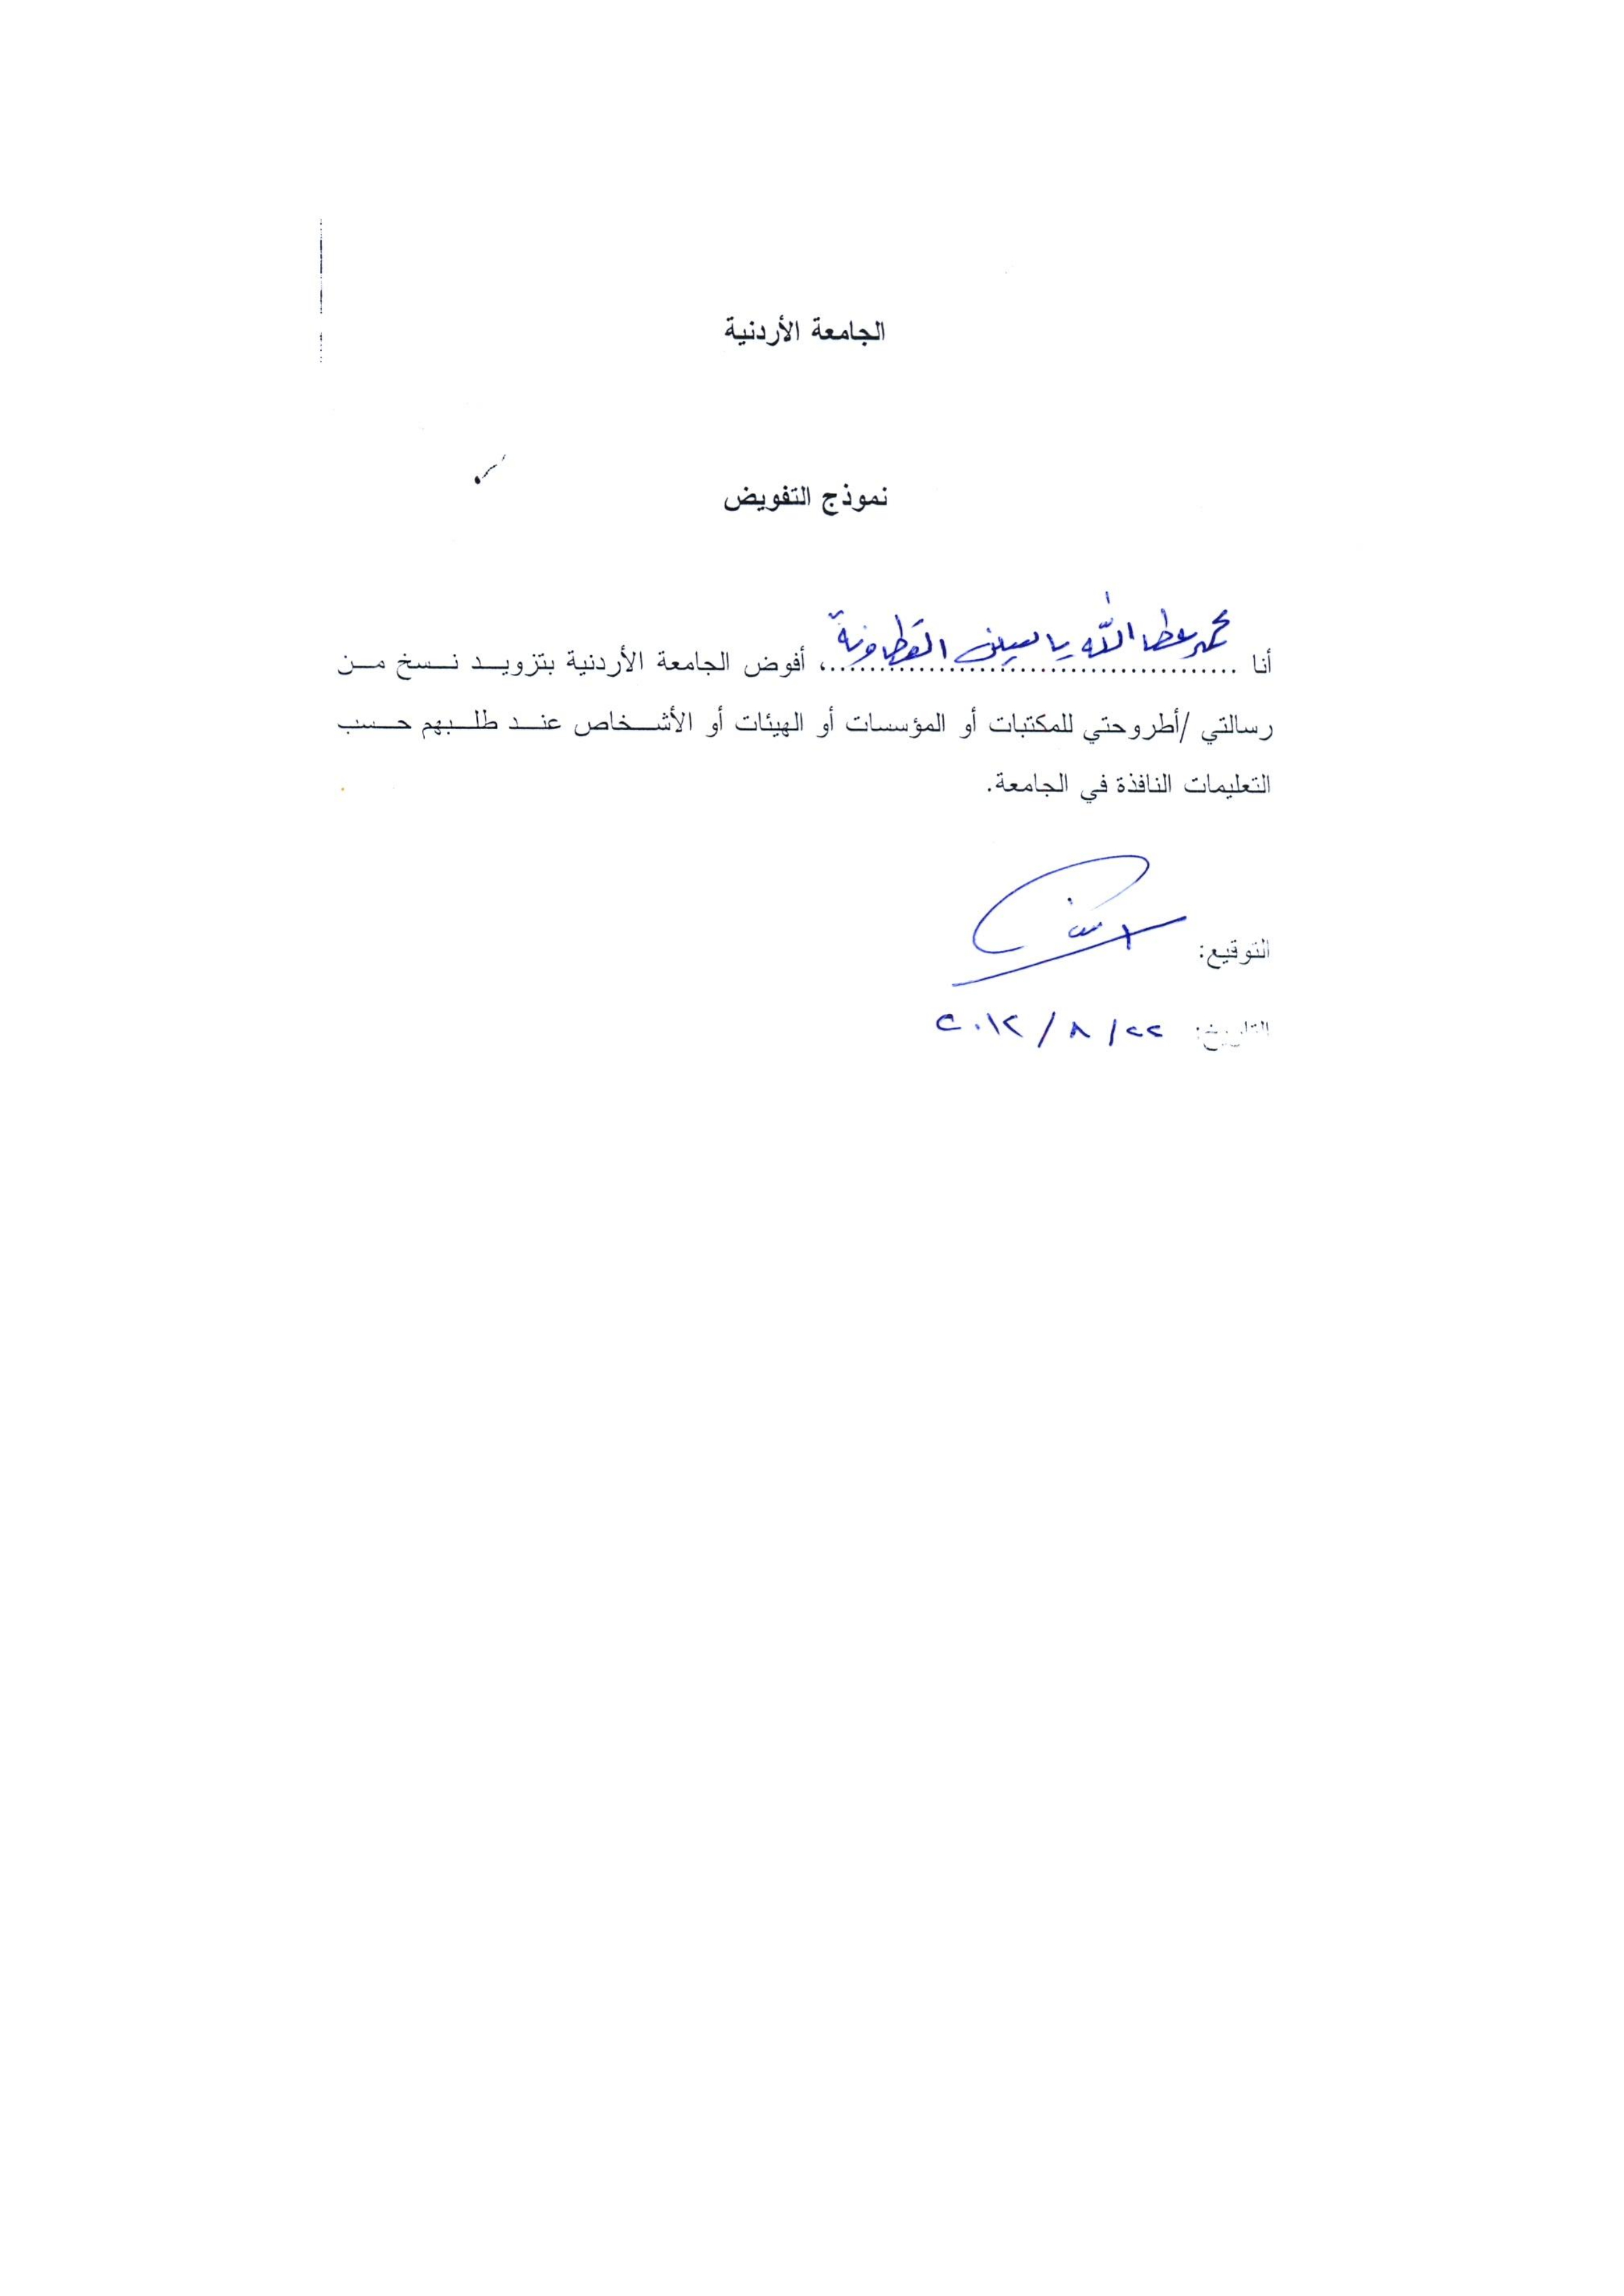 الجامعة الأردنية
نموذج التفويض
أنا محمد عطا الله ياسين القطاونة، أفوض الجامعة الأردنية بتزويد نسخ من
رسالتي /أطروحتي للمكتبات أو المؤسسات أو الهيئات أو الأشخاص عند طلبهم حسب
التعليمات النافذة في الجامعة.
التوقيع:
التاريخ: ٢٢/ ٨ / ٢٠١٢